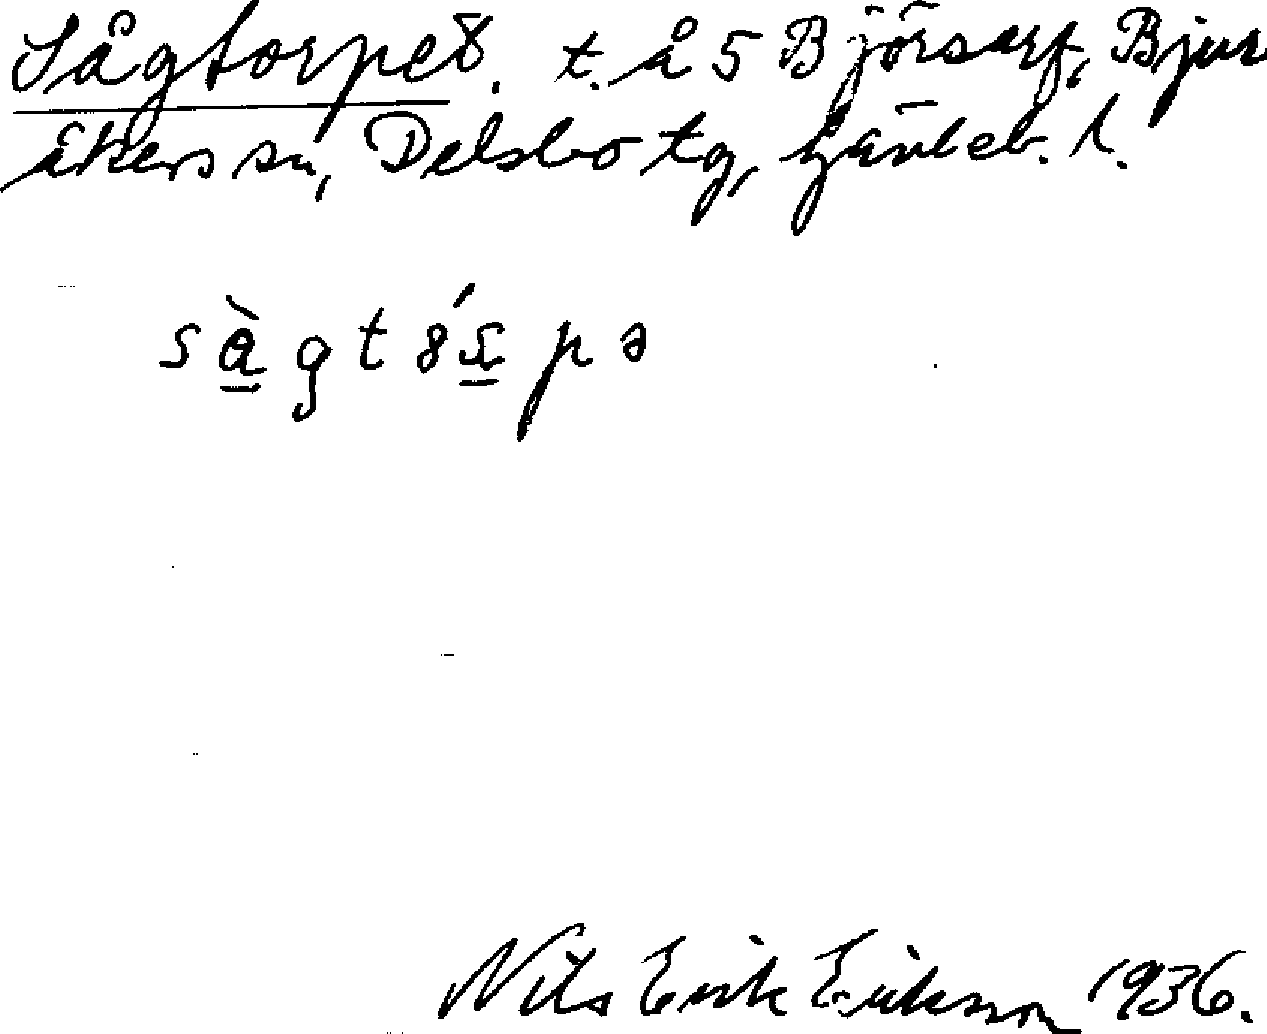 Sågtorpet. t. å 5 Björsarf, Bjur
åkers sn, Delsbo tg, Gävleb. l.
sà̱gtȣɾ̱́pə
Nils Erik Eriksson 1936.